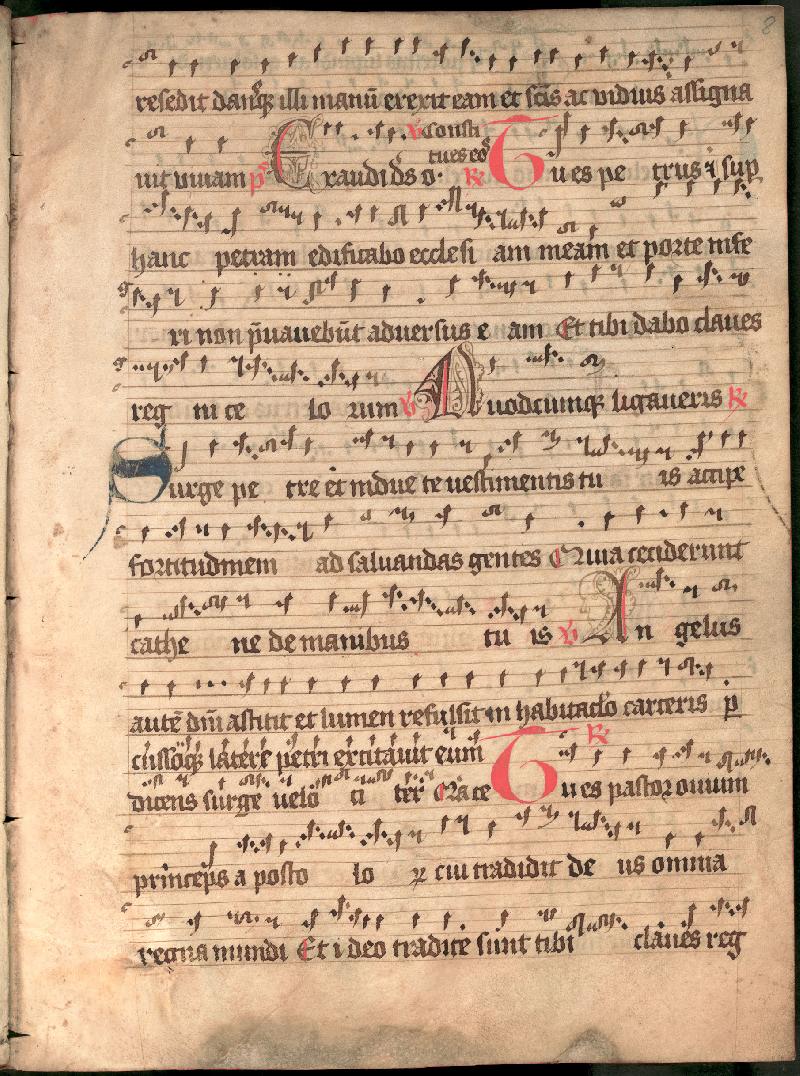 8
resedit dansq́ illi manū erexit eam et sc̄is ac viduis assigna
uit uiuam pͤ Exaudi ds o· ℣ Consti
tues eoˢ ℟ Tu es pe trus ⁊ sup
hanc petram edificabo ecclesi am meam et porte infe
ri non p̄ualebūt aduersus e am Et tibi dabo claues
reg ni ce lo rum ℣ Quodcumqꝫ ligaueris ℟
Surge pe tre et indue te uestimentis tu is accipe
fortitudinem ad saluandas gentes Quia ceciderunt
cathe ne de manibus tu is ℣ An gelus
autē dn̄i astitit et lumen refulsit in habitac̄lo carceris ꝑ
cussoqꝫ latere petri excitauit eum ℟
dicens surge uelo ci ter Qa ce Tu es pastor ouium
princeps a posto lo ꝝ tibi tradidit de us omnia
regna mundi Et i deo tradite sunt tibi claues reg